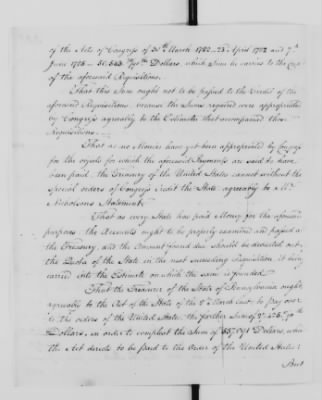 of the Acts of Congress of 30th March 1782 - 23 April 1782 and 7th
June 1785 - 50.543. 79/90ths Dollars, which sum he carries to the
of the aforesaid Requisitions.
That this Sum ought not to be passed to the Credit of the
aforesaid Requisitions because the Sums required were appropriated
by Congress agreeably to the Estimates that accompanied those
Requisitions.
That as no Monies have yet been appropriated by Congress
for the objects for which the aforesaid Payments are said to have
been paid, the Treasury of the United States cannot without the
special orders of Congress credit the State agreeably to Mr
Nicholsons Statement
That as every State has paid Money for the aforesaid
purposes, the Accounts ought to be properly examined and passed at
the Treasury, and the Amount found due should be deducted out
the Quota of the State in the next succeeding Requisition it being
carried into the Estimate on which the same is founded.
That the Treasurer of the State of Pennsylvania ought
agreeably to the Act of the State of the March last to pay over
to the orders of the United States the further Sum of
Dollars, in order to compleat the Sum of Dollars, which
the Act directs to be paid to the Order of the United States:
But